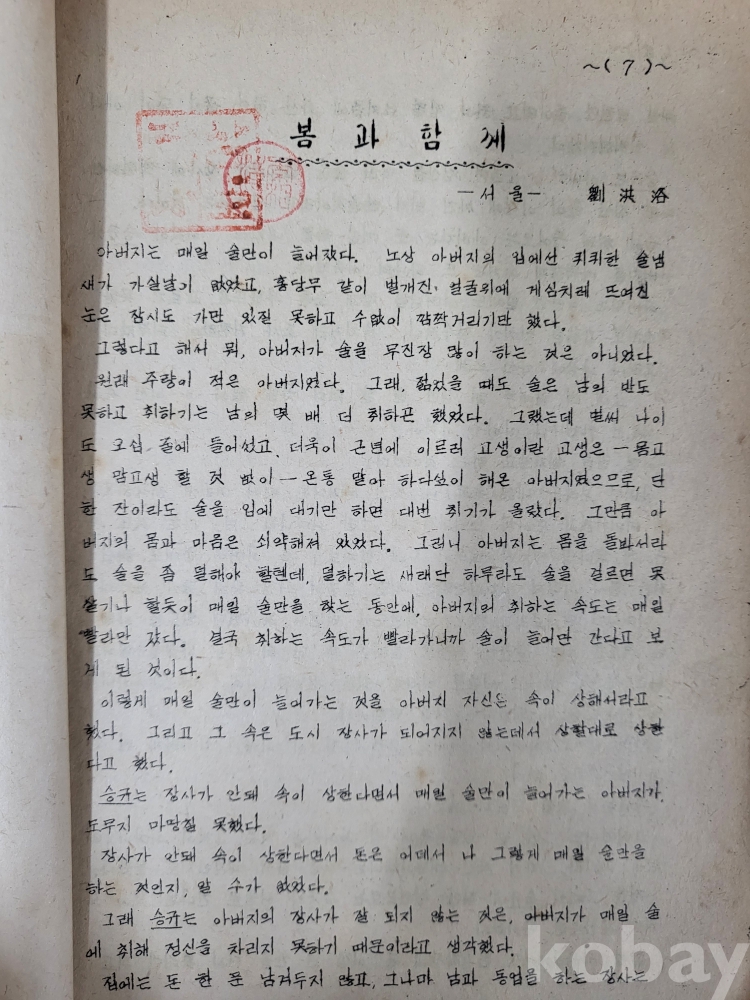 ~(7)~
봄과 함께
—서울— 劉洪洛
아버지는 매일 술만이 늘어갔다. 노상 아버지의 입에선 퀴퀴한 술냄
새가 가실날이 없었고, 홍당무 같이 벌개진 얼굴위에 게심치레 뜨여진
눈은 잠시도 가만 있질 못하고 수없이 깜짝거리기만 했다.
그렇다고 해서 뭐, 아버지가 술을 무진장 많이 하는 것은 아니었다.
원래 주량이 적은 아버지였다. 그래, 젊었을 때도 술은 남의 반도
못하고 취하기는 남의 몇 배 더 취하곤 했었다. 그랬는데 벌써 나이
도 오십 줄에 들어섰고, 더욱이 근년에 이르러 고생이란 고생은 — 몸고
생 맘고생 할 것 없이 — 온통 맡아 하다싶이 해온 아버지였으므로, 단
한 잔이라도 술을 입에 대기만 하면 대번 취기가 올랐다. 그만큼 아
버지의 몸과 마음은 쇠약해져 있었다. 그러니 아버지는 몸을 돌봐서라
도 술을 좀 덜해야 할텐데, 덜하기는 새래단 하루라도 술을 걸르면 못
살기나 할듯이 매일 술만을 찾는 동안에, 아버지의 취하는 속도는 매일
빨라만 갔다. 결국 취하는 속도가 빨라가니까 술이 늘어만 간다고 보
게 된 것이다.
이렇게 매일 술만이 늘어가는 것을 아버지 자신은 속이 상해서라고
했다. 그리고 그 속은 도시 장사가 되어지지 않는데서 상할대로 상한
다고 했다.
승규는 장사가 안돼 속이 상한다면서 매일 술만이 늘어가는 아버지가
도무지 마땅칠 못했다.
장사가 안돼 속이 상한다면서 돈은 어데서 나 그렇게 매일 술만을
하는 것인지, 알 수가 없었다.
그래 승규는 아버지의 장사가 잘 되지 않는 것은, 아버지가 매일 술
에 취해 정신을 차리지 못하기 때문이라고 생각했다.
집에는 돈 한 푼 남겨두지 않고, 그나마 남과 동업을 하는 장사는
kobay